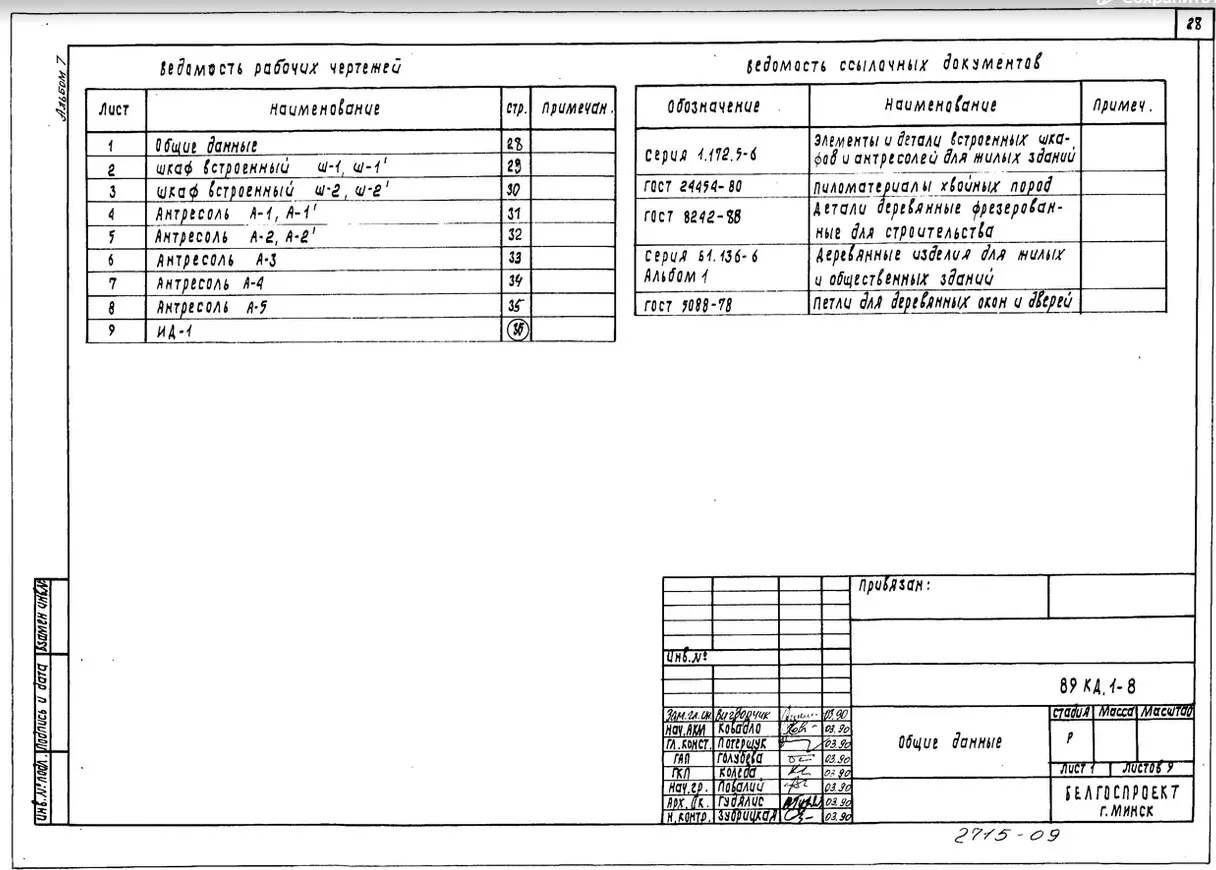 28
Альбом 7
Ведомость рабочих чертежей
Лист Наименование стр. Примечан.
1 Общие данные 28
2 шкаф встроенный Ш-1, Ш-1' 29
3 шкаф встроенный Ш-2, Ш-2' 30
4 Антресоль А-1, А-1' 31
5 Антресоль А-2, А-2' 32
6 Антресоль А-3 33
7 Антресоль А-4 34
8 Антресоль А-5 35
9 ИД-1 36
Ведомость ссылочных документов
Обозначение Наименование Примеч.
Серия 1.172.5-6 Элементы и детали встроенных шка-
фов и антресолей для жилых зданий
ГОСТ 24454-80 Пиломатериалы хвойных пород
ГОСТ 8242-88 Детали деревянные фрезерован-
ные для строительства
Серия Б1.136-6 Деревянные изделия для жилых
Альбом 1 и общественных зданий
ГОСТ 5088-78 Петли для деревянных окон и дверей
Привязан:
Инв.№
89 КД.1-8
Зам.гл.ин. Вигдорчик 03.90
Нач.АКМ Ковадло 03.90
Гл.конст. Потерщук 03.90
ГАП Голубева 03.90
ГКП Коледа 03.90
Нач.гр. Повалий 03.90
Арх.Iк. Гудялис 03.90
Н.контр. Зубрицкая 03.90
Общие данные
стадия Масса Масштаб
Р
Лист 1 Листов 9
БЕЛГОСПРОЕКТ
г. Минск
2715-09
Взамен инв.№
Подпись и дата
Инв.№подл.